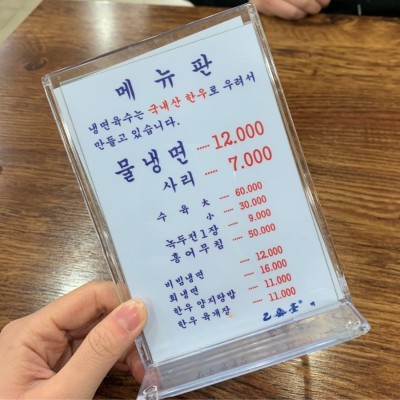 메뉴판
냉면육수는 국내산 한우로 우려서
만들고 있습니다.
물냉면 ---- 12.000
사리 ---- 7.000
수육 大 ---- 60.000
小 ---- 30.000
녹두전 1장 ---- 9.000
홍어무침 ---- 50.000
비빔냉면 ---- 12.000
회냉면 ---- 16.000
한우 양지탕밥 ---- 11.000
한우 육개장 ---- 11.000